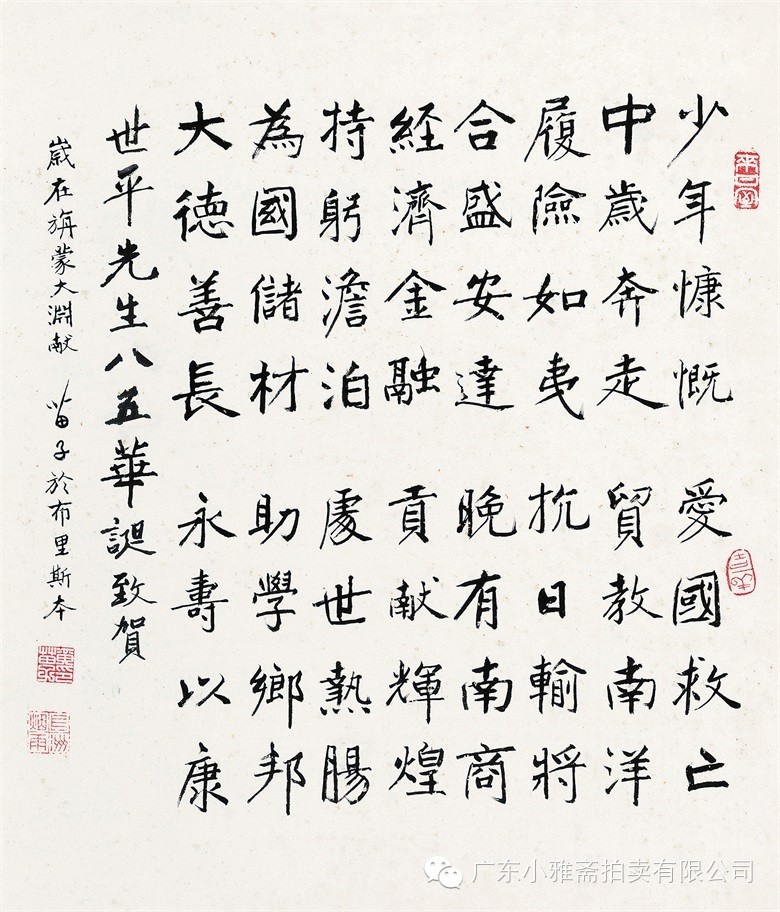 少年慷慨 愛國救亡
中歲奔走 貿教南洋
履險如夷 抗日輸將
合盛安達 晚有南商
経濟金融 貢献輝煌
持躬澹泊 處世熱腸
為國儲材 助學鄉邦
大德善長 永壽以康
世平先生八五華誕致賀
歲在旃蒙大淵献 苗子於布里斯本
广东小雅斋拍卖有限公司